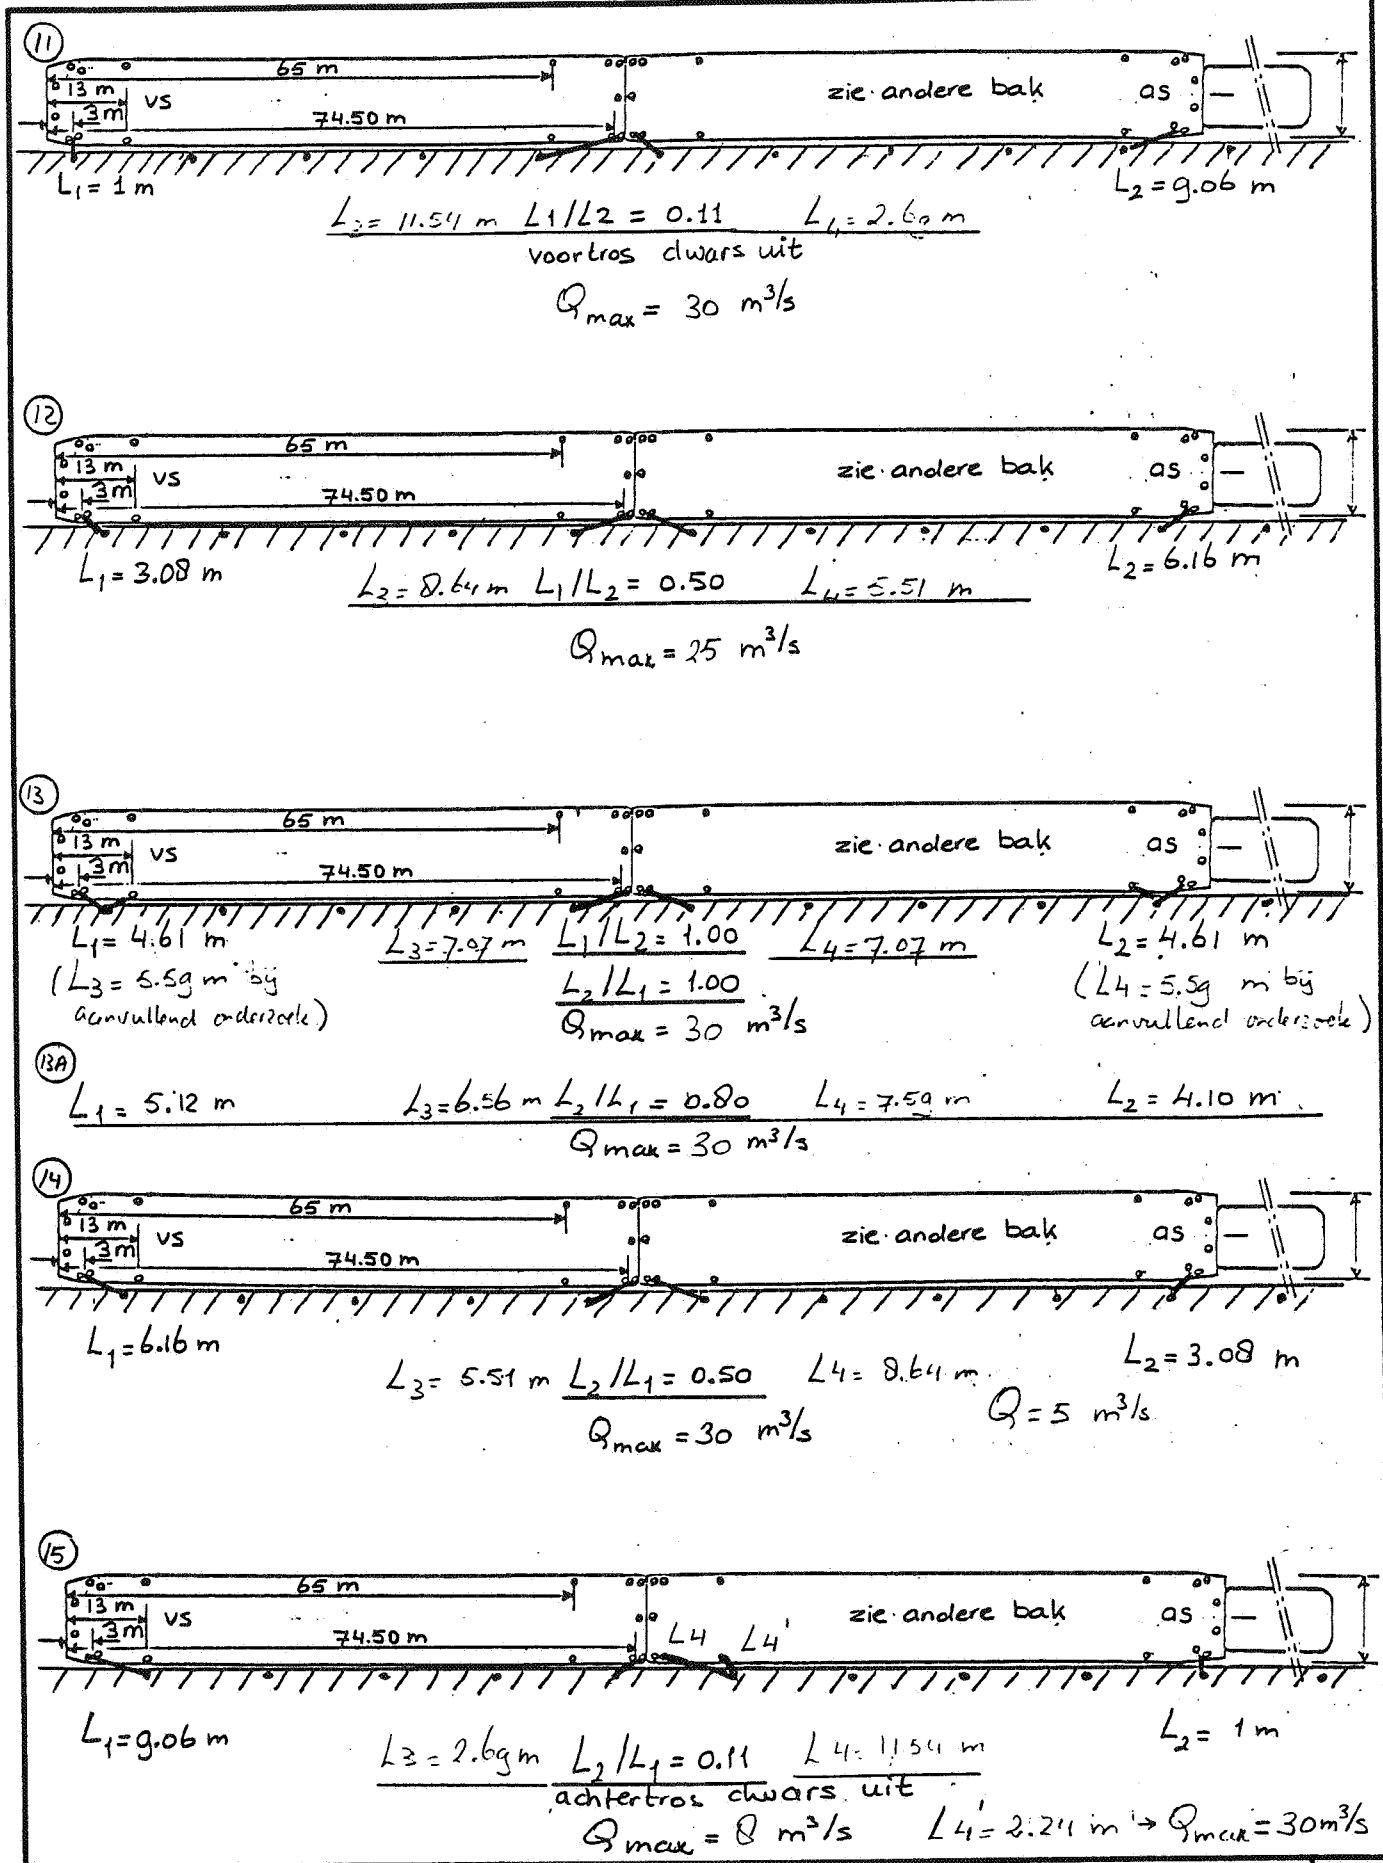 11
65 m
13 m
vs
3m
74.50 m
zie andere bak
as
L1 = 1 m
L2 = 9.06 m
L3 = 11.54 m L1/L2 = 0.11 L4 = 2.69 m
voortros dwars uit
Qmax = 30 m³/s
12
65 m
13 m
vs
3m
74.50 m
zie andere bak
as
L1 = 3.08 m
L2 = 6.16 m
L3 = 8.64 m L1/L2 = 0.50 L4 = 5.51 m
Qmax = 25 m³/s
13
65 m
13 m
vs
3m
74.50 m
zie andere bak
as
L1 = 4.61 m L3 = 7.07 m L1/L2 = 1.00 L4 = 7.07 m L2 = 4.61 m
(L3 = 5.59 m bij
aanvullend onderzoek)
L2/L1 = 1.00
(L4 = 5.59 m bij
aanvullend onderzoek)
Qmax = 30 m³/s
13A
L1 = 5.12 m L3 = 6.56 m L2/L1 = 0.80 L4 = 7.59 m L2 = 4.10 m
Qmax = 30 m³/s
14
65 m
13 m
vs
3m
74.50 m
zie andere bak
as
L1 = 6.16 m
L2 = 3.08 m
L3 = 5.51 m L2/L1 = 0.50 L4 = 8.64 m
Qmax = 30 m³/s
Q = 5 m³/s
15
65 m
13 m
vs
3m
74.50 m
L4 L4'
zie andere bak
as
L1 = 9.06 m
L2 = 1 m
L3 = 2.69 m L2/L1 = 0.11 L4 = 11.54 m
achtertros dwars uit
Qmax = 8 m³/s L4' = 2.24 m → Qmax = 30 m³/s